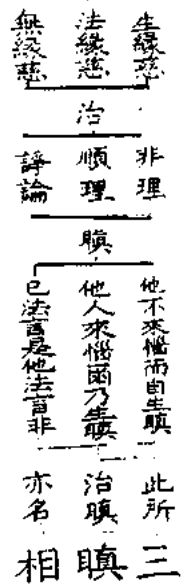 生緣慈
法緣慈
無緣慈
治
非理
順理
諍論
瞋
他不來惱而自生瞋
他人來惱爾乃生瞋
已法言是他法言非
此所
治瞋
亦名
三
瞋
相